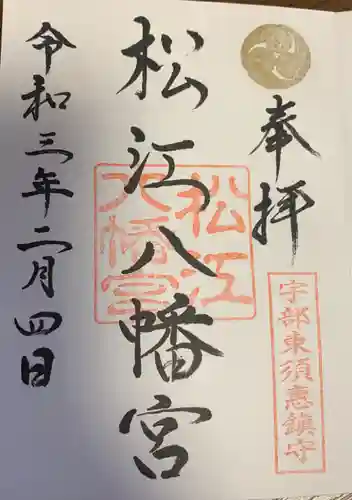 奉拝
宇部東須恵鎮守
松江八幡宮
松江
八幡宮
令和三年二月四日